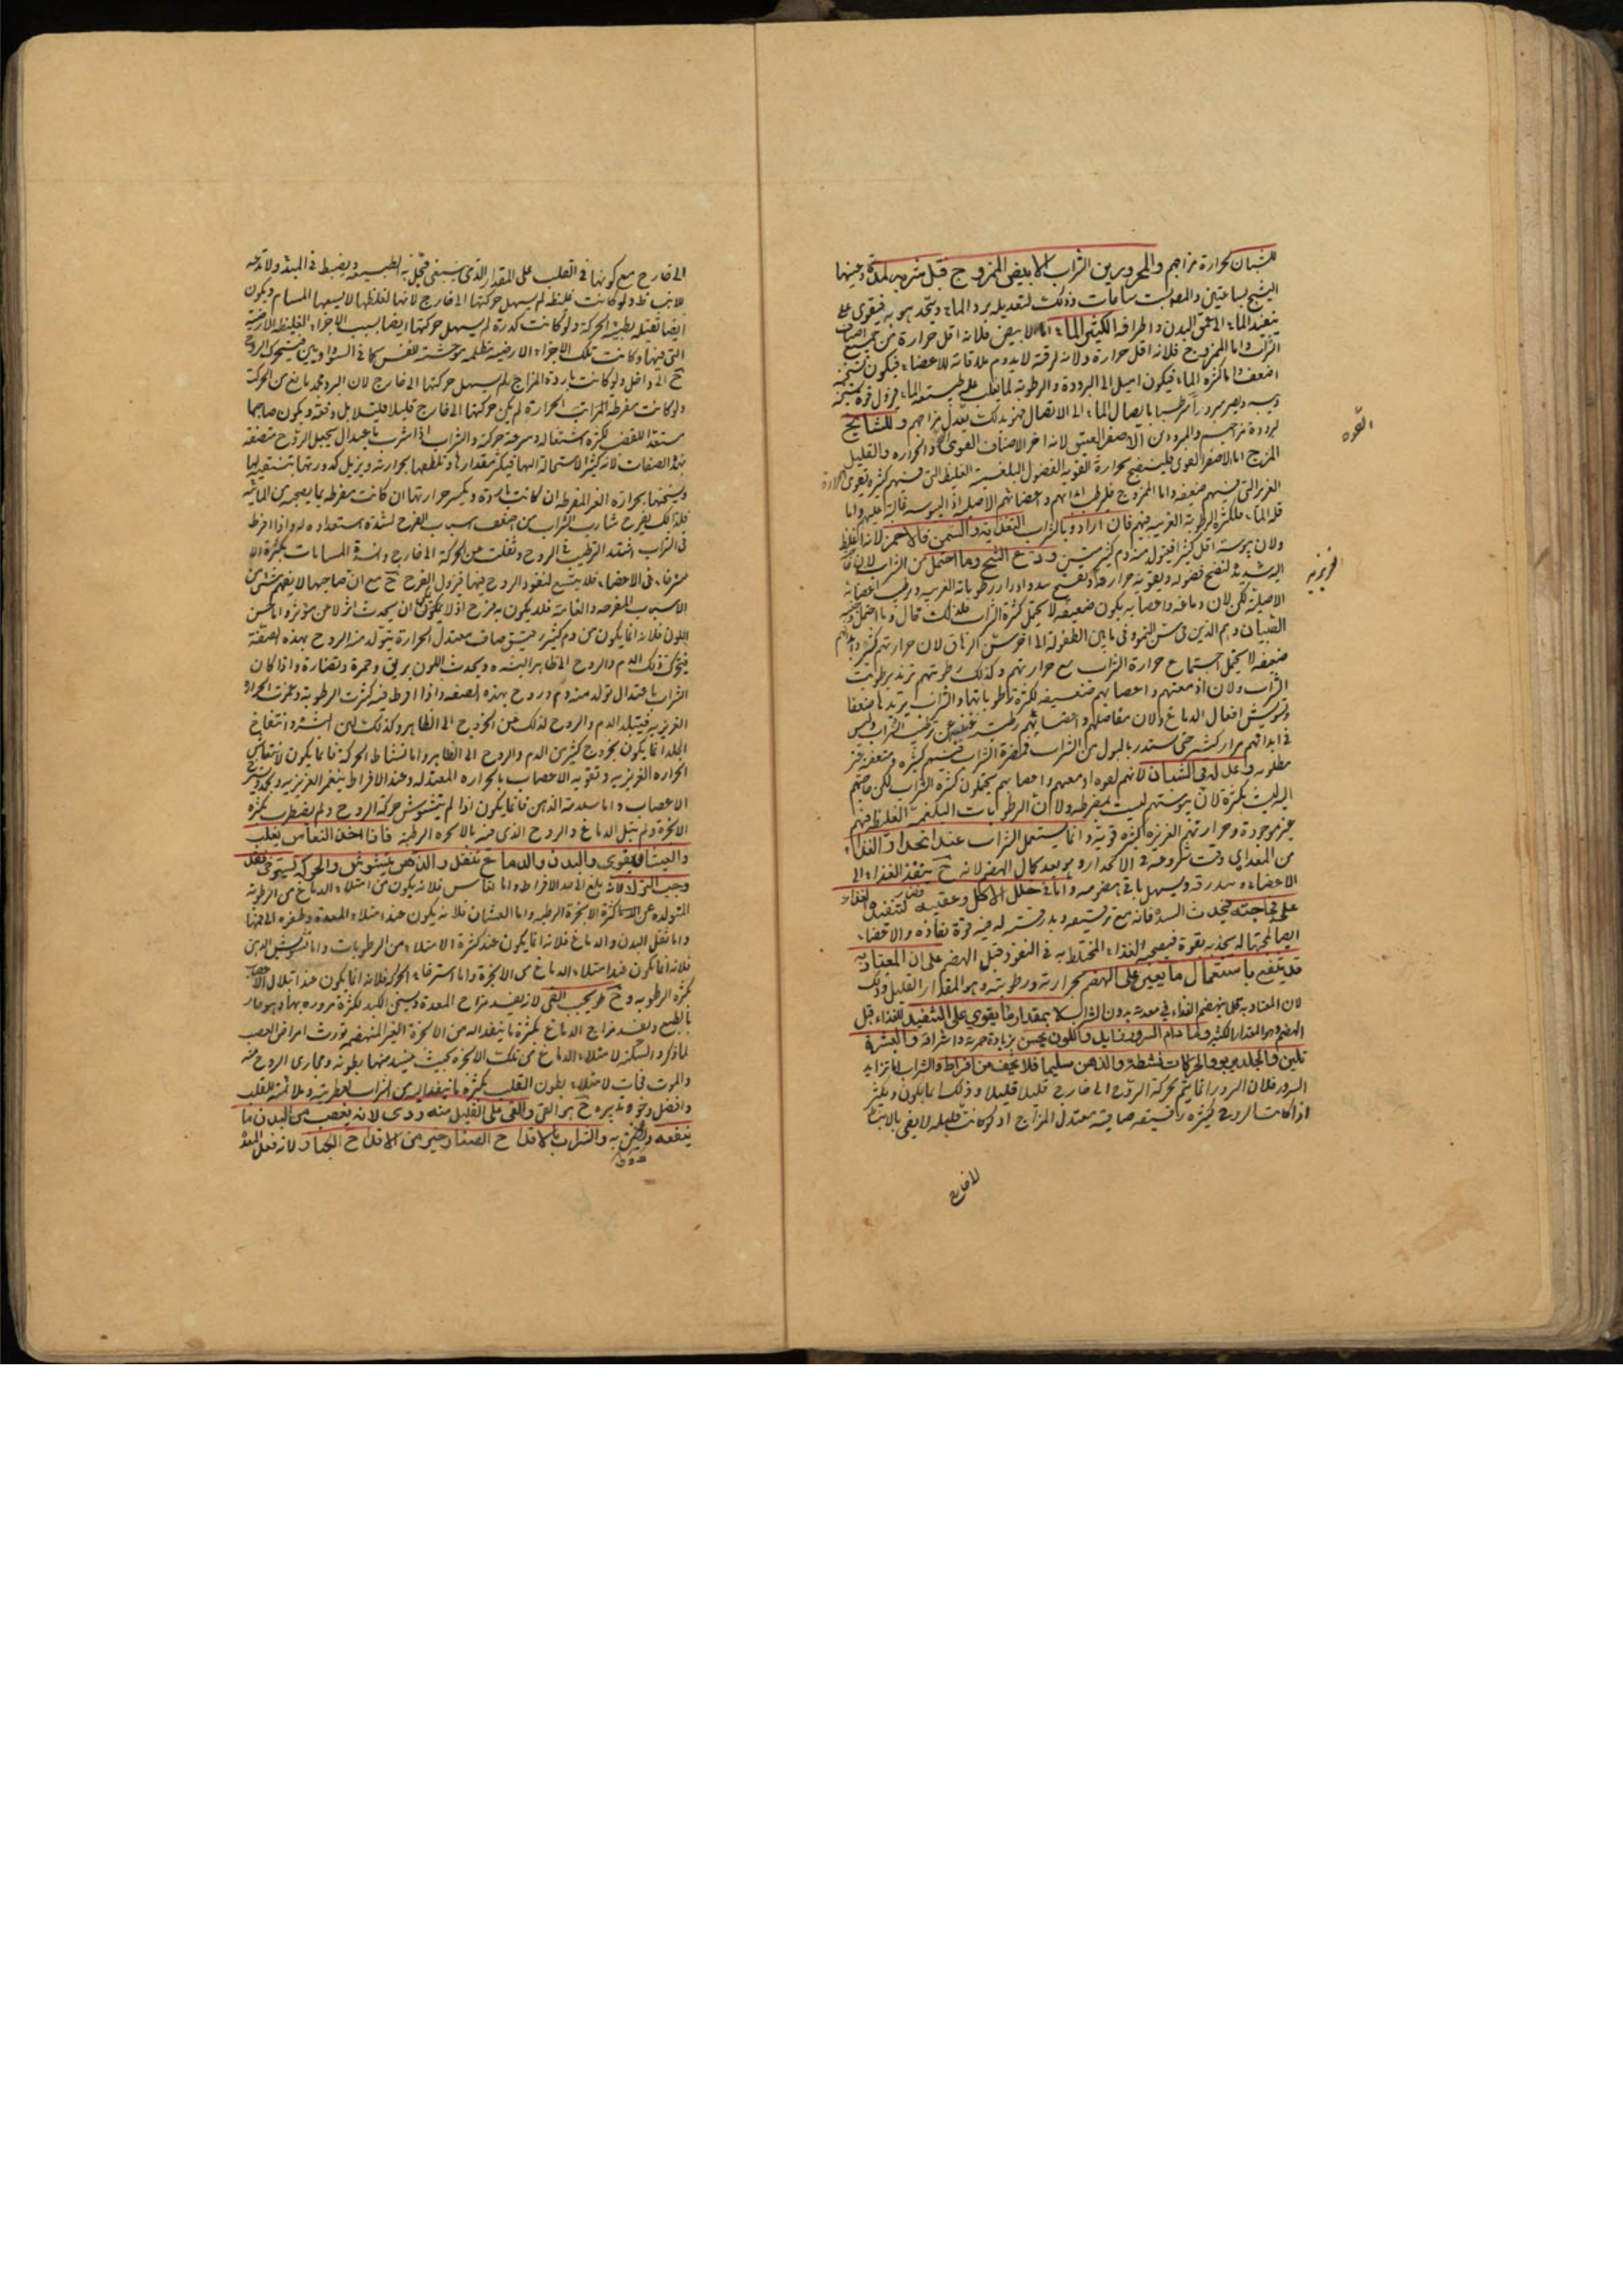 للشبان لحرارة مزاجهم والمحرورين الشراب الابيض الممزوج قبل شربه لمدة وعينها
الشيخ بساعتين والمصـ بست ساعات وذلك لتعديله برد الماء ويتحد هو به فيقوى على
تنفيذ الماء الى عمق البدن واطرافه الكثير الماء اما الابيض فلانه اقل حرارة من جميع اصناف
الشراب واما الممزوج فلانه اقل حرارة ولانه لرقته لا يدوم ملاقاته للاعضاء فيكون تسخينه
اضعف واما كثرة الماء فيكون اميل الى البرودة والرطوبة لما يغلب على طبيعته الماء
بايصال الماء الى الاتصال فبذلك يعدل مزاجهم وللمشايخ
لبرودة مزاجهم والمبرودين الاصفر العتيق لانه آخر الاصناف القوى الحرارة والقليل
المزج اما الاصفر القوى فلينضج بحرارة القوية الفضول البلغمية الغليظة التى فيهم كثيرة تقوى الحرارة
الغريزية التى فيهم ضعيفة واما الممزوج فلترطيب ابدانهم واعضائهم الاصلية اذ اليبوسة غالبة عليهم واما
قلة الماء فلكثرة الرطوبة الغريبة فيهم فان ارادوا بالشراب التغذية والتسمين فالاحمر لانه اغلظ
ولان يبوسته اقل كثيرا فيتولد منه دم كثير متين ودع الشيخ وما احتمل من الشراب لان
اليه شديد لنضج فضوله وتقوية حرارته وتفتيح سدده وادرار رطوباته الغريبة وترطيب اعضائه
الاصلية لكن لان دماغه واعصابه يكون ضعيفة لا يحتمل كثرة الشراب فلذلك قال وما احتمل وجنبه
الصبيان وهم الذين فى سن النمو فى ما بين الطفولة الى آخر سن الرهاق لان حرارتهم كثيرة
ضعيفة لا يحتمل اجتماع حرارة الشراب مع حرارتهم وكذلك رطوبتهم تزيد برطوبة
الشراب ولان ادمغتهم واعصابهم ضعيفة لكثرة رطوباتها والشراب يزيدها ضعفا
وتشويش افعال الدماغ ولان مفاصلهم واعصابهم رطبة غنية عن ترطيب الشراب وليس
فى ابدانهم مرار كثيرة حتى يستدر بالبول من الشراب فمضرة الشراب فيهم كثيرة ومنفعته غير
مطلوبة وعدله فى الشبان لانهم لقوة ادمغتهم واعصابهم يحتملون كثرة الشراب لكن حاجتهم
اليه ليست بكثرة لان يبوستهم ليست بمفرطة ولان الرطوبات البلغمية الغليظة فيهم
غير موجودة وحرارتهم الغريزية كثيرة قوية وانما يستعمل الشراب عند انحدار الغذاء
من المعدة اى وقت شروعه فى الانحدار وهو بعد كمال الهضم لانه ح ينفذ الغذاء الى
الاعضاء ببدرقة ويسهل باقى هضمه واما فى خلل الاكل وعقيبه فضار لتنفيذه الغذاء
على فجاجته فيحدث السدة فانه مع ترقيقه وبدرقته له فيه قوة نفاذة والاعضاء
ايضا لمحبتها له يجذبه بقوة فيصحبه الغذاء المختلط به فى النفوذ قبل الهضم على ان المعتاد به
قد ينتفع باستعمال ما يعين على الهضم بحرارته ورطوبته وهو المقدار القليل وذلك
لان المعتاد به لا ينهضم الغذاء فى معدته بدون الشراب لا بمقدار ما يقوى على التنفيذ للغذاء قبل
الهضم وهو المقدار الكثير وما دام السرور فى تزايد واللون يحسن بزيادة حمرة واشراقه والبشرة
تلين والجلد يربو والحركات نشطة والذهن سليما فلا تخف من افراط والشراب اما تزايد
السرور فلان السرور انما يتم بحركة الروح الى خارج قليلا قليلا وذلك انما يكون ويكثر
اذا كانت الروح كثيرة رقيقة صافية معتدل المزاج اذ لو كانت قليلة لا يفى بالانبساط
القوة
الغريزية
لا خارج
الى خارج مع كونها فى القلب على المقدار الذى ينبغى فتبخل به الطبيعة ويضبط فى المبدء ولا تدعه
للانبساط ولو كانت غليظة لم يسهل حركتها الى خارج لانها لغلظها لا يسعها المسام ويكون
ايضا ثقيلة بطيئة الحركة ولو كانت كدرة لم يسهل حركتها ايضا بسبب الاجزاء الغليظة الارضية
التى فيها وكانت تلك الاجزاء الارضية مظلمة موحشة للنفس كما فى السوداويين فيتحرك الروح
ح الى داخل ولو كانت باردة المزاج لم يسهل حركتها الى خارج لان البرد مجمد مانع من الحركة
ولو كانت مفرطة المزاج الحرارة لم يكن حركتها الى خارج قليلا قليلا بل دفعة ويكون صاحبها
مستعدا للغضب لكثرة اشتعاله وسرعة حركته والشراب اذا شرب باعتدال يجعل الروح متصفة
بهذه الصفات لانه كثير الاستحالة اليها فيكثر مقدارها ويلطفها بحرارته ويزيل كدورتها
ويسخنها بحرارته الغير المفرطة ان كانت باردة ويكسر حرارتها ان كانت مفرطة بما يصحبه من المائية
فلذلك يفرح شارب الشراب من اضعف اسباب الفرح لشدة استعداده له واذا افرط
فى الشراب اشتد الترطيب فى الروح وثقلت عن الحركة الى خارج وانسدت المسامات بكثرة
فى الاعضاء فلا يتسع لنفوذ الروح فيها فيزول الفرح ح مع ان صاحبها لا يفهم شئ من
الاسباب المفرحة والغامة فلا يكون به فرح اذ لا يمكن ان يحدث اثر لا عن مؤثر واما حسن
اللون فلانه انما يكون من دم كثير رقيق صاف معتدل الحرارة يتولد منه الروح بهذه الصفة
فيتحرك ذلك الدم والروح الى ظاهر البشرة ويحدث اللون بريق وحمرة ونضارة واذا كان
الشراب باعتدال تولد منه دم وروح بهذه الصفة واذا افرط فيه كثرت الرطوبة وغمرت الحرارة
الغريزية فيتبلد الدم والروح لذلك عن الخروج الى الظاهر وكذلك لين البشرة وانتفاخ
الجلد انما يكون بخروج كثير من الدم والروح الى الظاهر واما نشاط الحركة فانما يكون لانتعاش
الحرارة الغريزية وتقوية الاعصاب بالحرارة المعتدلة وعند الافراط ينغمر الغريزية ويحدث
الاعصاب واما سلامة الذهن فانما يكون اذا لم يتشوش حركة الروح ولم يضطرب بكثرة
الابخرة ولم يبتل الدماغ والروح الذى فيه بالابخرة الرطبة فاذا اخذ النعاس يغلب
والغثيان يقوى والبدن والدماغ تثقل والذهن يتشوش والحركة تسترخى فقد
وجب الترك لانه بلغ الى حد الافراط واما النعاس فلانه يكون من امتلاء الدماغ من الرطوبة
المتولدة عن كثرة الابخرة الرطبة واما الغثيان فلانه يكون عند امتلاء المعدة وطفوه الى فمها
واما ثقل البدن والدماغ فلانه انما يكون عند كثرة الامتلاء من الرطوبات واما تشويش الذهن
فلانه انما يكون عند امتلاء الدماغ من الابخرة واما استرخاء الحركة فلانه انما يكون عند ابتلال الاعصاب
بكثرة الرطوبة وح يجب القى لانه يفسد مزاج المعدة ويسخن الكبد لكثرة مروره بها وهو حار
بالطبع ويفسد مزاج الدماغ بكثرة ما ينفذ اليه من الابخرة الغير المنهضمة يورث امراض العصب
لما ذكر والسكتة لامتلاء الدماغ من تلك الابخرة بحيث ينسد منها بطونه ومجارى الروح منه
والموت فجأة لامتلاء بطون القلب بكثرة ما ينفذ اليه من الشراب لعطريته وملائمته للقلب
وافضل تدبيره ح هو القى والقى على القليل منه ردى لانه يغصب من البدن ما
ينفعه به والشراب بالاقداح الصغار خير من الاقداح الكبار لانه فعل المعدة